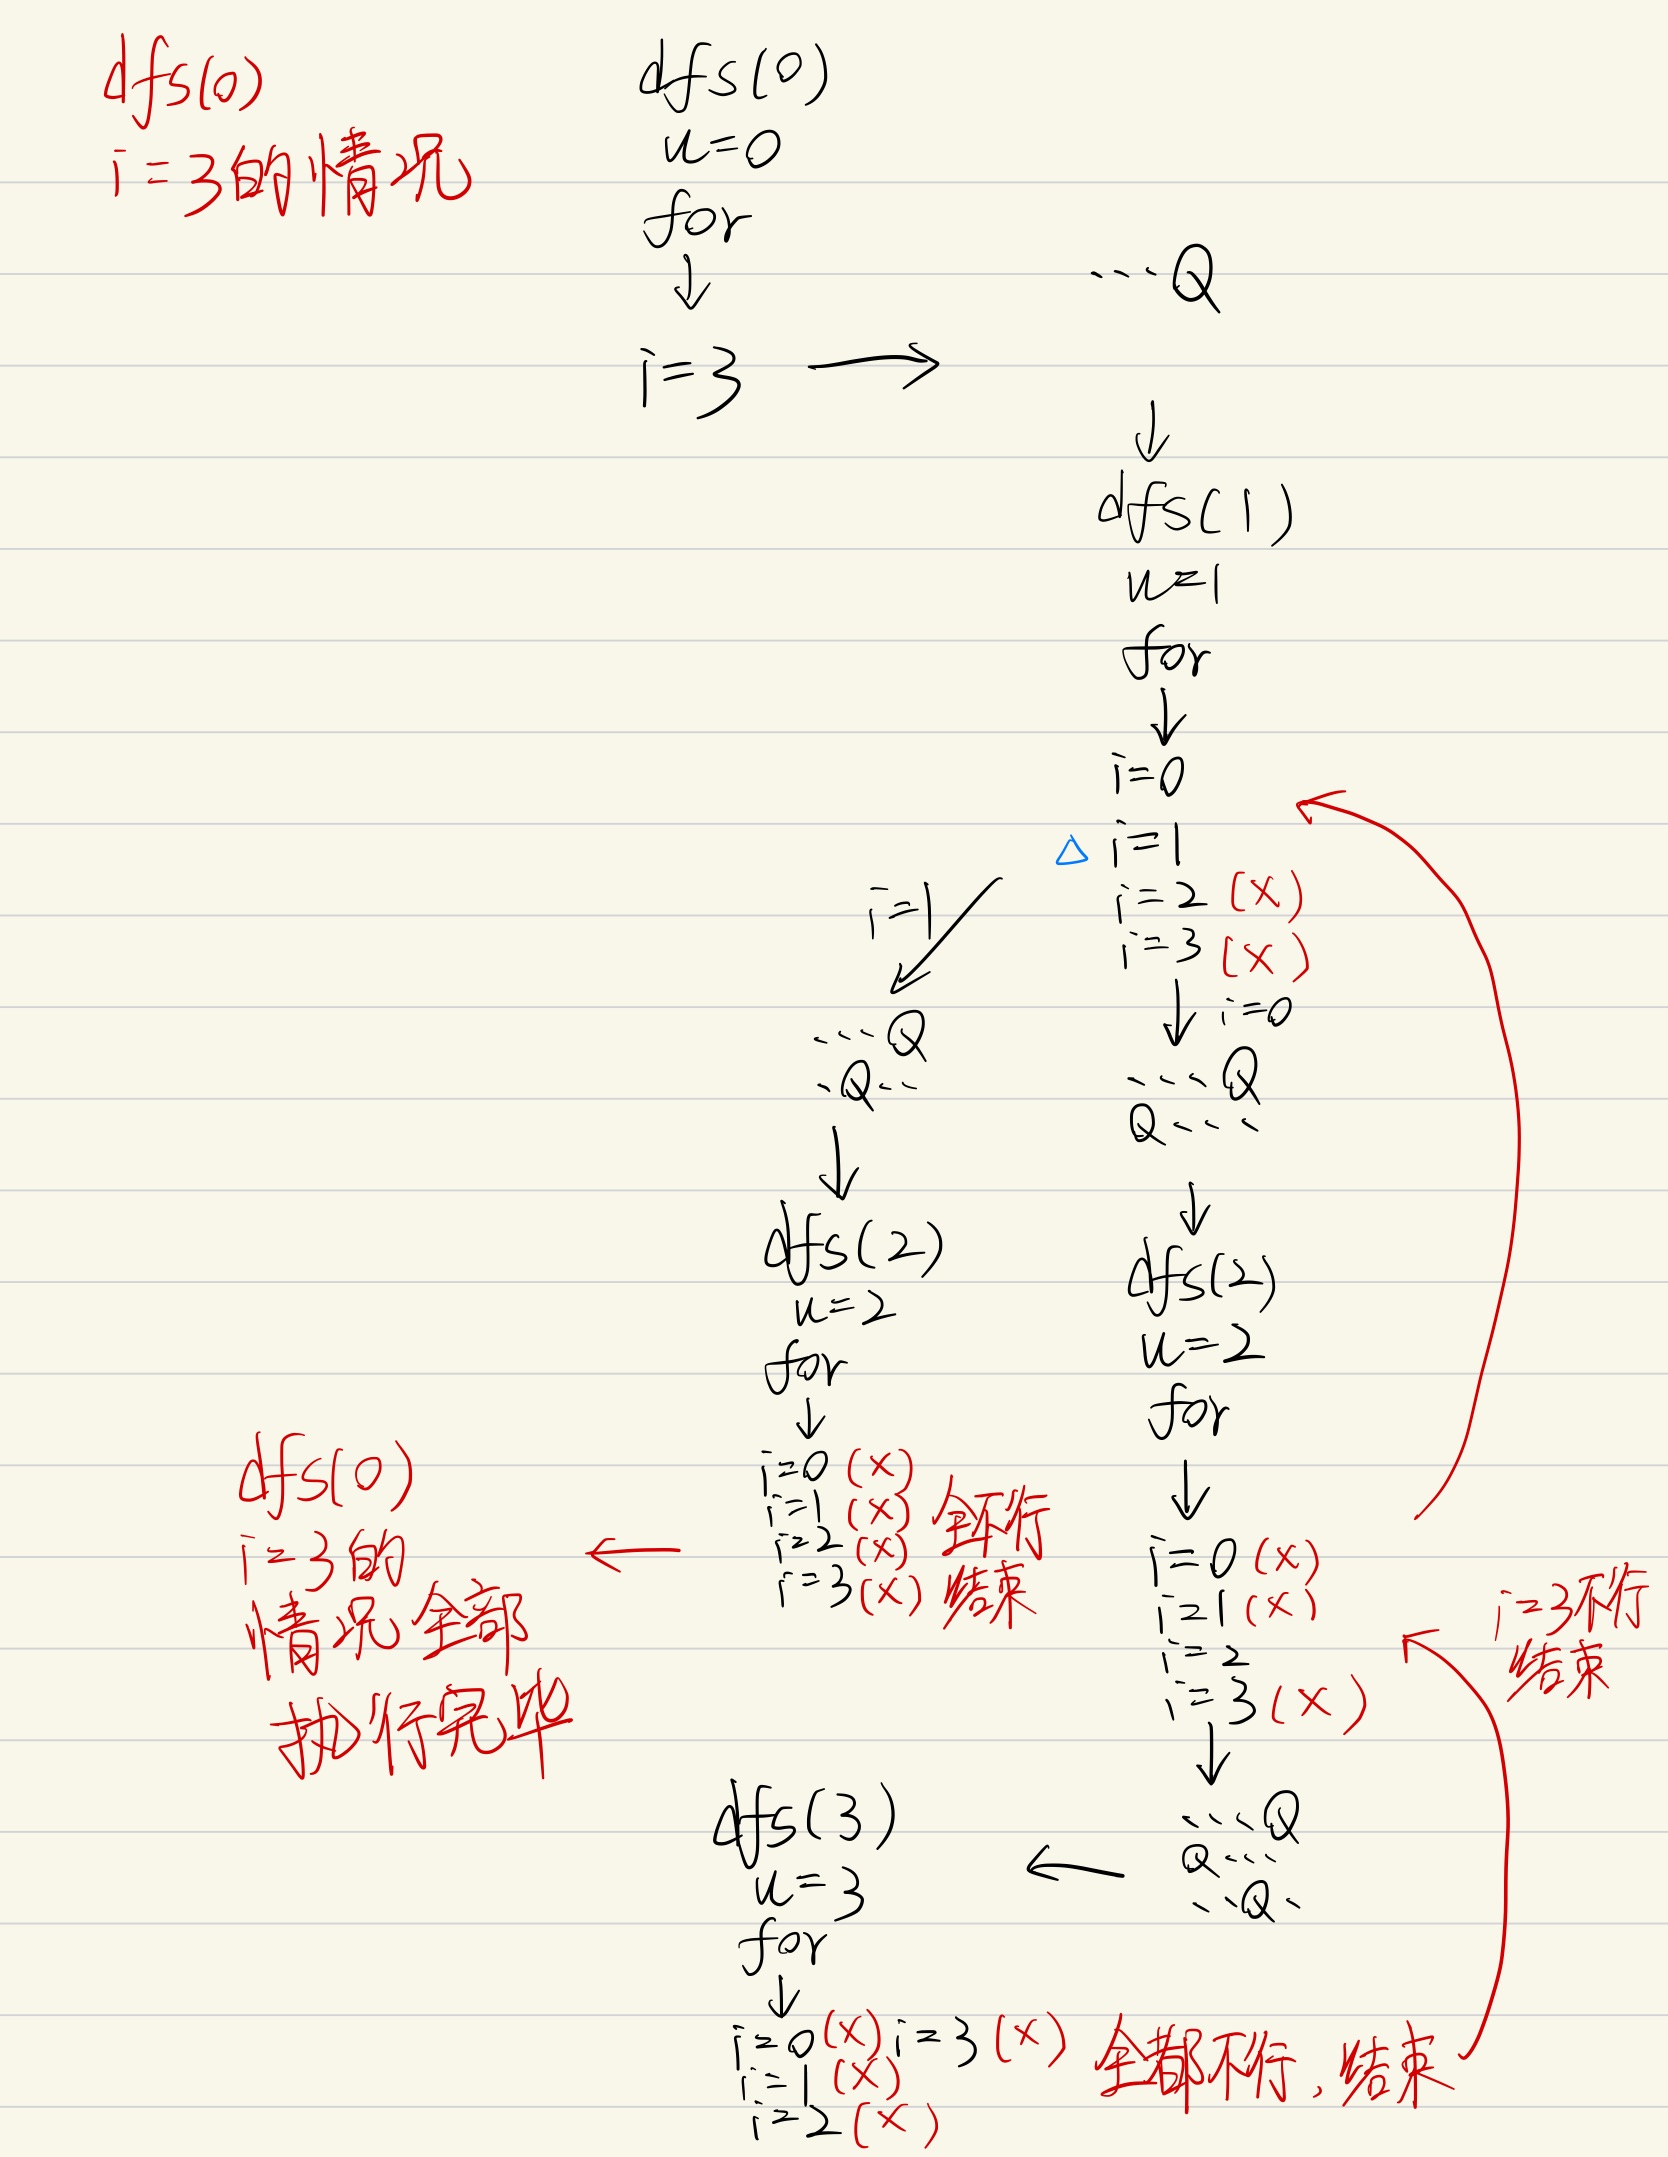 dfs(0)
i=3的情况
dfs(0)
u=0
for
↓
i=3 →
...Q
↓
dfs(1)
u=1
for
↓
i=0
△ i=1
i=2 (x)
i=3 (x)
↓ i=0
....Q
Q....
↓
dfs(2)
u=2
for
↓
i=0 (x)
i=1 (x)
i=2
i=3 (x)
↓
....Q
Q...
...Q.
i=3不行
结束
i=1
....Q
.Q...
↓
dfs(2)
u=2
for
↓
i=0 (x)
i=1 (x)
i=2 (x)
i=3 (x)
全不行
结束
←
dfs(0)
i=3的
情况全部
执行完毕
←
dfs(3)
u=3
for
↓
i=0 (x) i=3 (x)
i=1 (x)
i=2 (x)
全都不行,结束